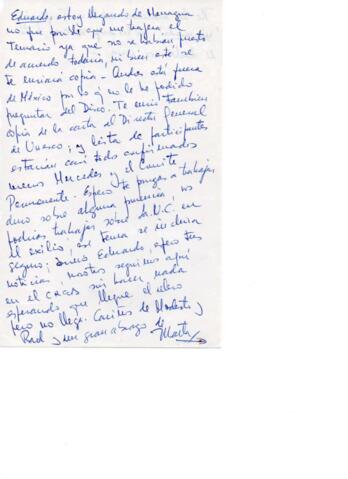 Eduardo: estoy llegando de Managua
no fue posible que me trajera el
Temario ya que no se habían puesto
de acuerdo todavía, ni bien esté se
te enviará copia – Andrés está fuera
de México por lo q' no le he podido
preguntar del Disco. Te envío también
copia de la carta al Director General
de Unesco; y lista de participantes
estarían casi todos confirmados
menos Mercedes y el Comité
Permanente. Espero te pongas a trabajar
duro sobre alguna ponencia, vos
podrías trabajar sobre la U.C. en
el exilio, ese tema se incluirá
seguro; bueno Eduardo, espero tus
noticias, nosotros seguimos aquí
en el sin hacer nada
esperando que llegue el
pero no llega. Cariños de Modesto y
Raúl y un gran abrazo de
Marta